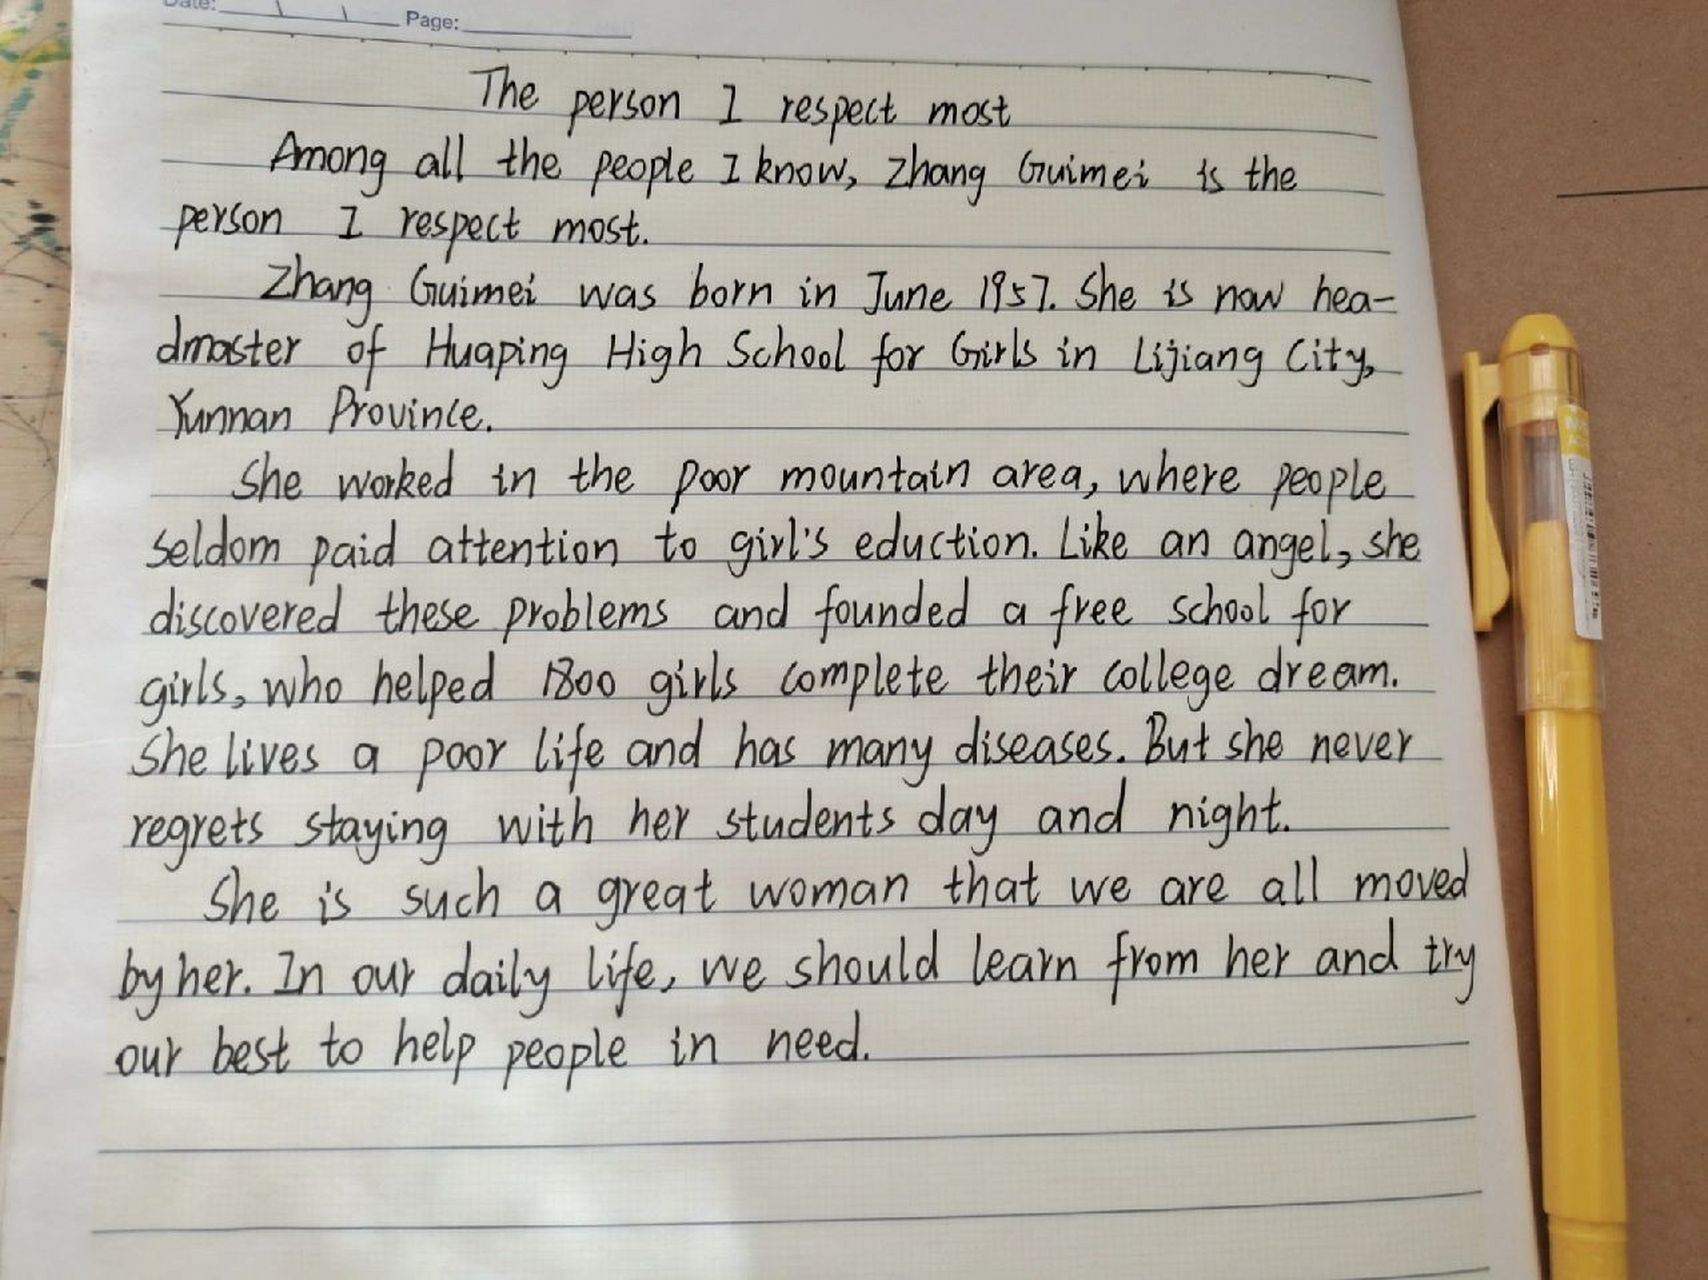 Date:
Page:
The person I respect most
Among all the people I know, Zhang Guimei is the
person I respect most.
Zhang Guimei was born in June 1957. She is now hea-
dmaster of Huaping High School for Girls in Lijiang City,
Yunnan Province.
She worked in the poor mountain area, where people
seldom paid attention to girl's eduction. Like an angel, she
discovered these problems and founded a free school for
girls, who helped 1800 girls complete their college dream.
She lives a poor life and has many diseases. But she never
regrets staying with her students day and night.
She is such a great woman that we are all moved
by her. In our daily life, we should learn from her and try
our best to help people in need.